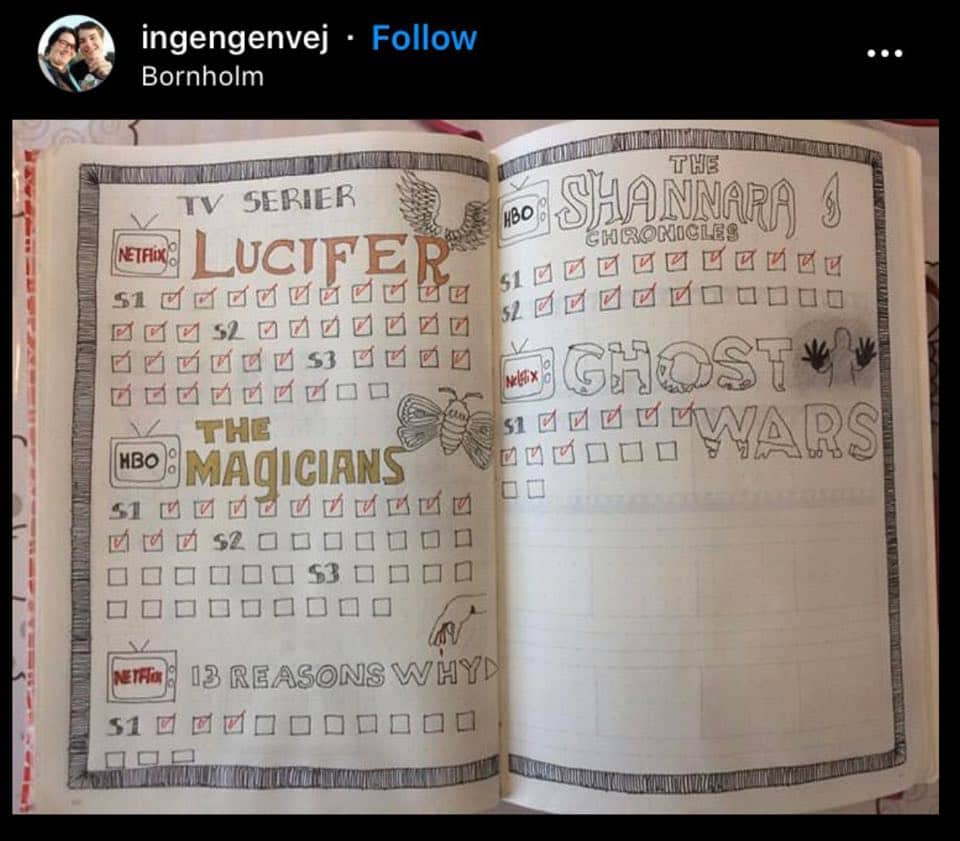 ingengenvej · Follow
Bornholm
TV SERIER
NETFLIX LUCIFER
S1
S2
S3
HBO THE
MAGICIANS
S1
S2
S3
NETFLIX 13 REASONS WHY
S1
HBO THE
SHANNARA
CHRONICLES
S1
S2
Netflix GHOST
S1 WARS